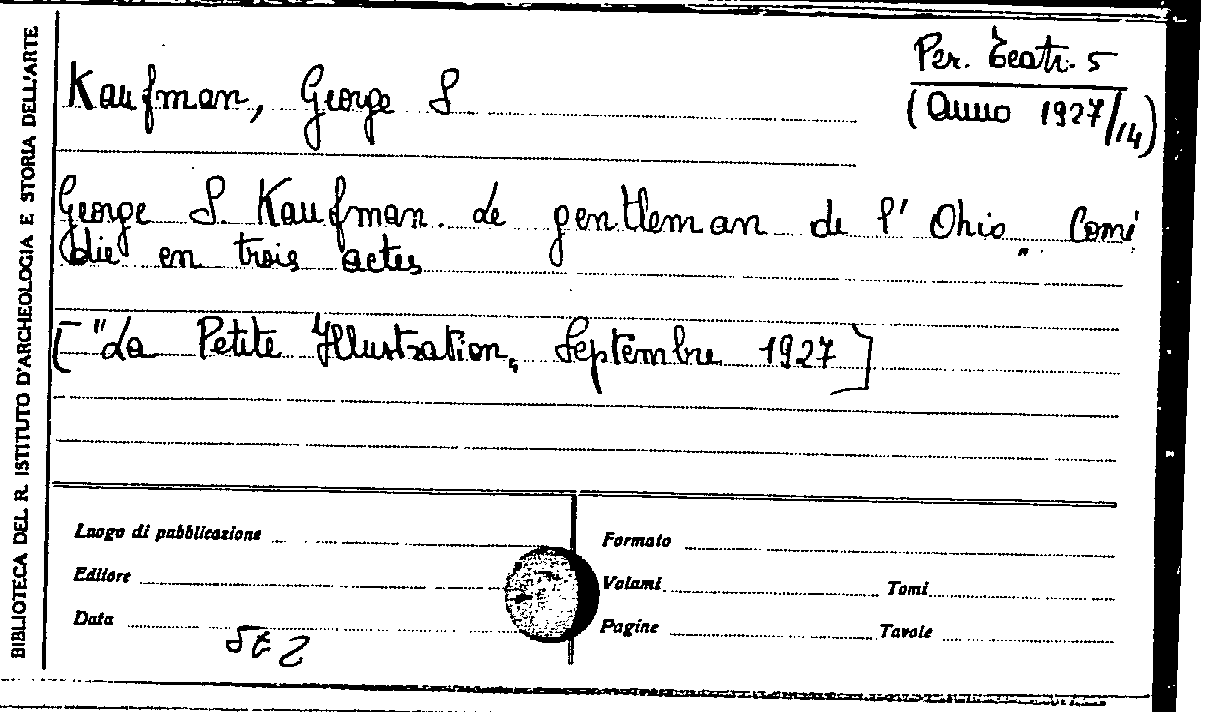 BIBLIOTECA DEL R. ISTITUTO D'ARCHEOLOGIA E STORIA DELL'ARTE
Per. Teatr. 5
(Anno 1927/14)
Kaufman, George S
George S. Kaufman. Le gentleman de l'Ohio. Comé
die en trois actes
["La Petite Illustration, Septembre 1927]
Luogo di pubblicazione
Editore
Data
Formato
Volumi Tomi
Pagine Tavole